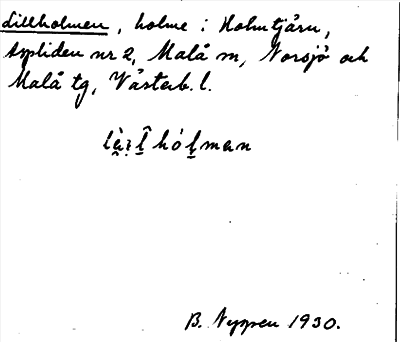 Lillholmen, holme i Holmtjärn,
Aspliden nr 2, Malå sn, Norsjö och
Malå tg, Västerb. l.
B. Nyman 1930.